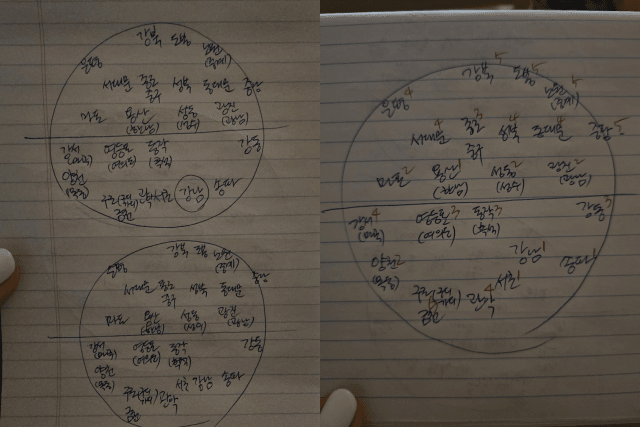 강북 도봉 노원
(중계)
은평
서대문 종로 성북 동대문 중랑
중구
마포 용산 성동 광진
(한남) (성수) (광남)
강서 영등포 동작 강동
(마곡) (여의도) (흑석)
양천
(목동)
구로 관악 서초 강남 송파
금천
강북 도봉 노원
(중계)
은평 중랑
서대문 종로 성북 동대문
중구
마포 용산 성동 광진
(한남) (성수) (광남)
강서 영등포 동작 강동
(마곡) (여의도) (흑석)
양천
(목동)
서초 강남 송파
관악
금천
강북5 도봉5 노원5
(중계)
은평4
서대문4 종로3 성북4 동대문4 중랑5
중구
마포2 용산1 성동2 광진2
(한남) (성수) (광남)
강서4 영등포3 동작3 강동3
(마곡) (여의도) (흑석)
양천2 강남1 송파
(목동)
관악4 서초1
금천